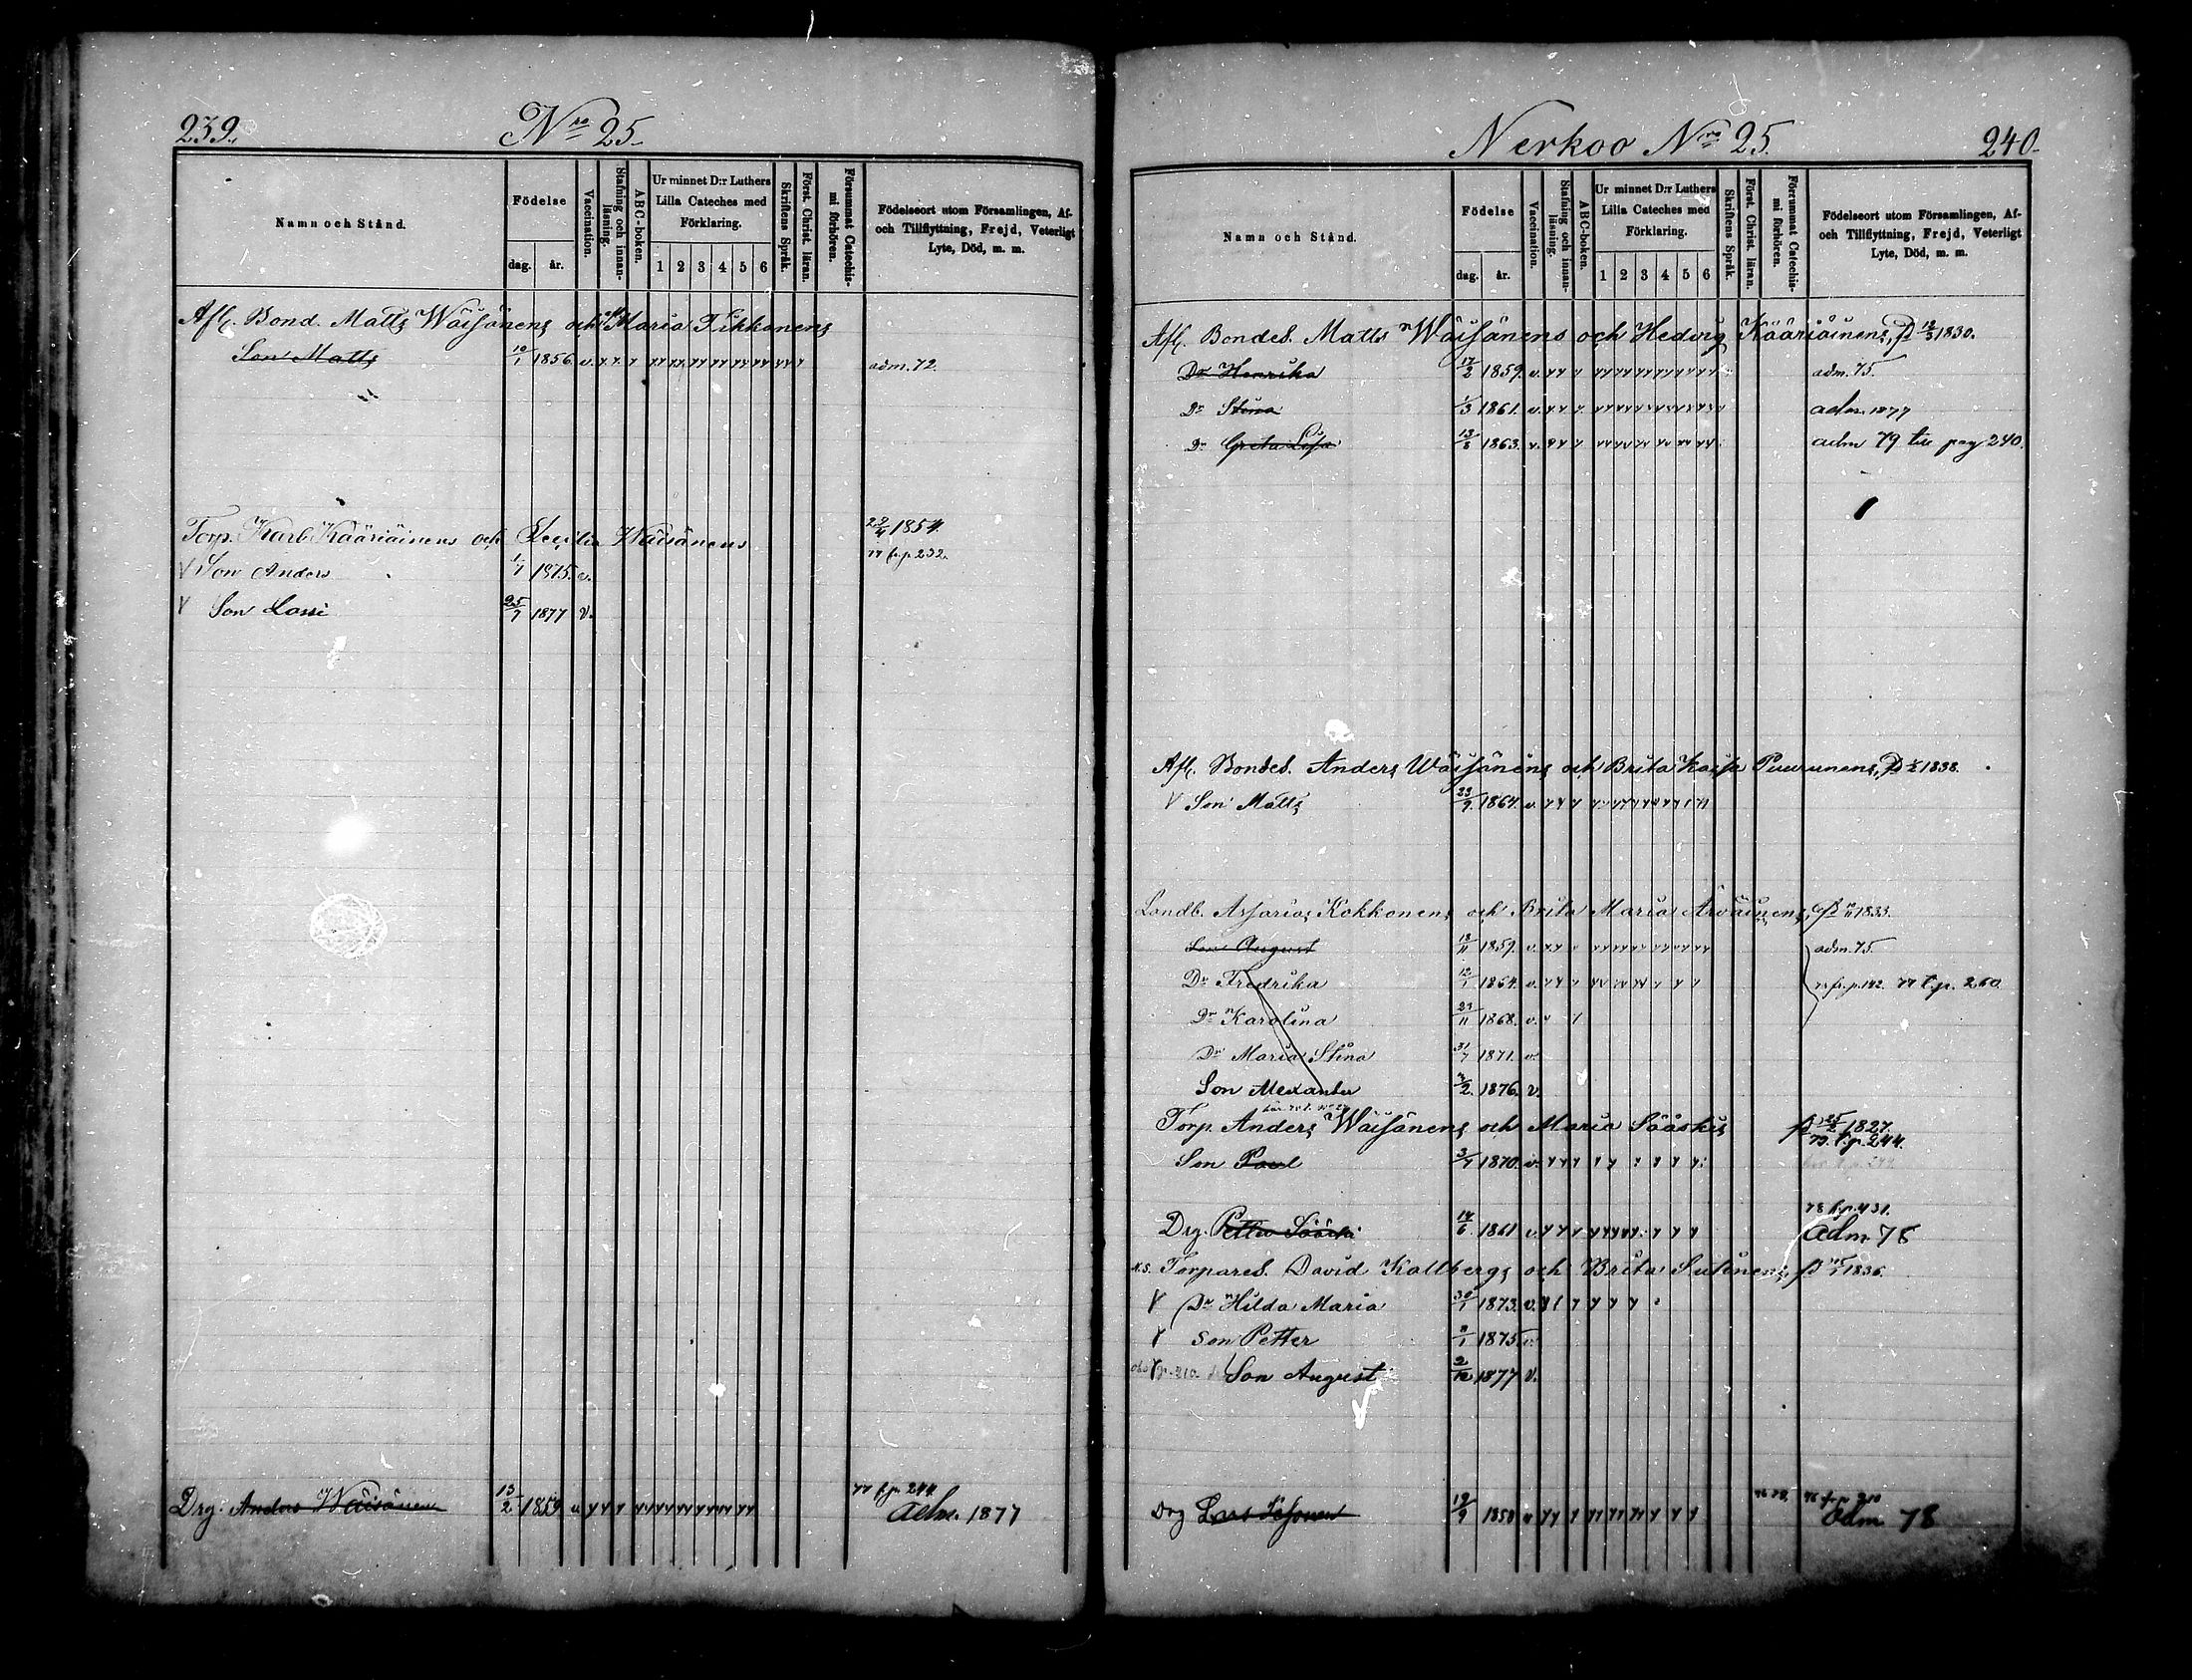 239.
No 25.
Namn och Stånd.
Födelse
dag.
år.
Vaccination.
Stafning och innanläsning.
ABC-boken.
Ur minnet D:r Luthers
Lilla Cateches med
Förklaring.
1 2 3 4 5 6
Skriftens Språk.
Först. Christ. läran.
Försummat Catechismi förhören.
Födelseort utom Församlingen, Af-
och Tillflyttning, Frejd, Veterligt
Lyte, Död, m. m.
Afl. Bond. Matts Wäisänens och Maria Tikkanens
Son Matts 10/1 1856. v. adm. 72.
Torp. Karl Kääriäinens och Cecilia Wäisänens 1854.
77 fr. p. 232.
Son Anders 1875. v.
Son Lassi 25/7 1877 v.
77 fr. p. 244
Drg: Anders Wäisänen 13/2 1859 v adm. 1877
Nerkoo No 25.
240.
Namn och Stånd.
Födelse
dag.
år.
Vaccination.
Stafning och innanläsning.
ABC-boken.
Ur minnet D:r Luthers
Lilla Cateches med
Förklaring.
1 2 3 4 5 6
Skriftens Språk.
Först. Christ. läran.
Försummat Catechismi förhören.
Födelseort utom Församlingen, Af-
och Tillflyttning, Frejd, Veterligt
Lyte, Död, m. m.
Afl. Bondes. Matts Wäisänens och Hedvig Kääriäinens, 1830.
Dr Henrika 17/2 1859. v. adm. 75.
Dr Stina 1/3 1861. v. adm. 1877
Dr Greta Lisa 13/8 1863. v. adm 79 pag 240.
Afl. Bondes. Anders Wäisänens och Brita Kaisa Puurunens, 1838.
Son Matts 23/9. 1864. v.
Landb. Asarias Kokkonens och Brita Maria Arvainens, 1833.
Son August 18/11 1859. v. adm. 75.
Dr Fredrika 12/1 1864. v. fr. p. 142. 77 t. p. 260.
Dr Karolina 1868. v.
Dr Maria Stina 31/7 1871. v.
Son Alexander 1876. v.
Torp. Anders Wäisänens och Maria Sääskis 25/2 1827.
79. t. p. 244.
Son Paul 3/7 1870. v.
78 fr. p. 431.
Drg. Petter Sääski 14/6 1861 v. adm 78
Torpares. David Kallbergs och Brita Sutinens, 1836.
Dr Hilda Maria 30/1 1873. v.
Son Petter 1875 v.
Son August 2/12 1877 v.
76 fr. p. 210
Drg Lars 19/9 1850 v adm 78